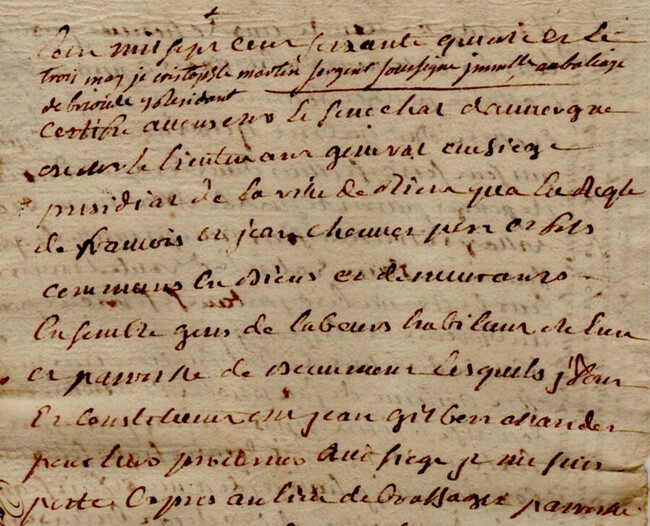 Lan mil sept cent soixante quinze et le
trois may je cristophle martin sergent soussigne jmmlle au baliage
de brioude y residant
Certifie a vous mr le senechal dauvergne
ou mr le lieutenant general en siege
presidial de la ville de Riom qua la Reqte
de francois et jean chauvet pere et fils
communs en Biens et demeurants
Ensemble gens de labeurs habitans de lieu
et parroisse de Beaumont lesquels
Et constituent mr jean gilbert
pour leur procureur audit siege je me suis
porte Expres au lieu de Brassaget parroisse